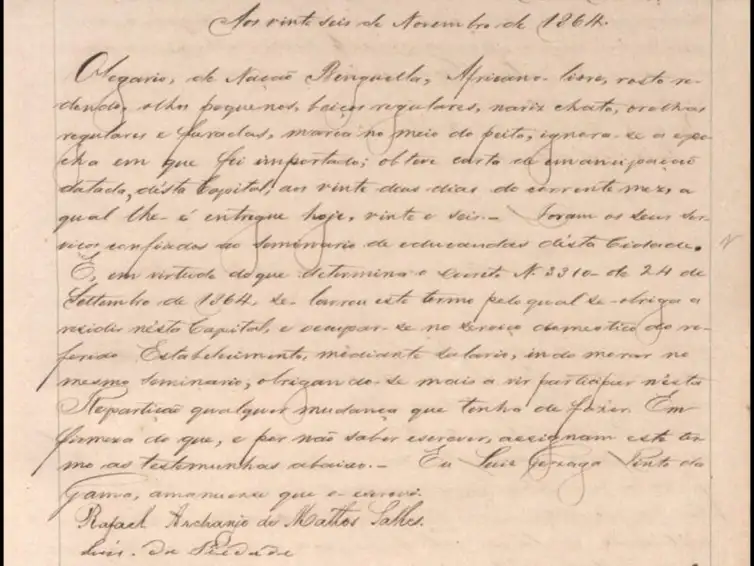 Aos vinte seis de Novembro de 1864.
Olegario, de Nação Benguella, Africano livre, rosto re-
dondo, olhos pequenos, beiços regulares, nariz chato, orelhas
regulares e furadas, marca no meio do peito, ignora-se a epo-
cha em que foi importado; obteve carta de emancipação
datada, desta Capital, aos vinte dous dias do corrente mez, a
qual lhe é entregue hoje, vinte e seis. – Foram os seus ser-
viços confiados ao Seminario de educandas desta Cidade.
E, em virtude do que determina o Decreto N. 3310 de 24 de
Settembro de 1864, se lavrou este termo pelo qual se obriga a
residir nésta Capital, e occupar-se no serviço domestico do re-
ferido Estabelecimento, mediante salario, indo morar no
mesmo Seminario; obrigando-se mais a vir participar nésta
Repartição qualquer mudança que tenha de fazer. Em
firmeza do que, e por não saber escrever, assignam este ter-
mo as testemunhas abaixo. – Eu Luiz Gonzaga Pinto da
Gama, amanuense que o escrevi.
Rafael Archanjo de Mattos Salles.
Luis da Piedade